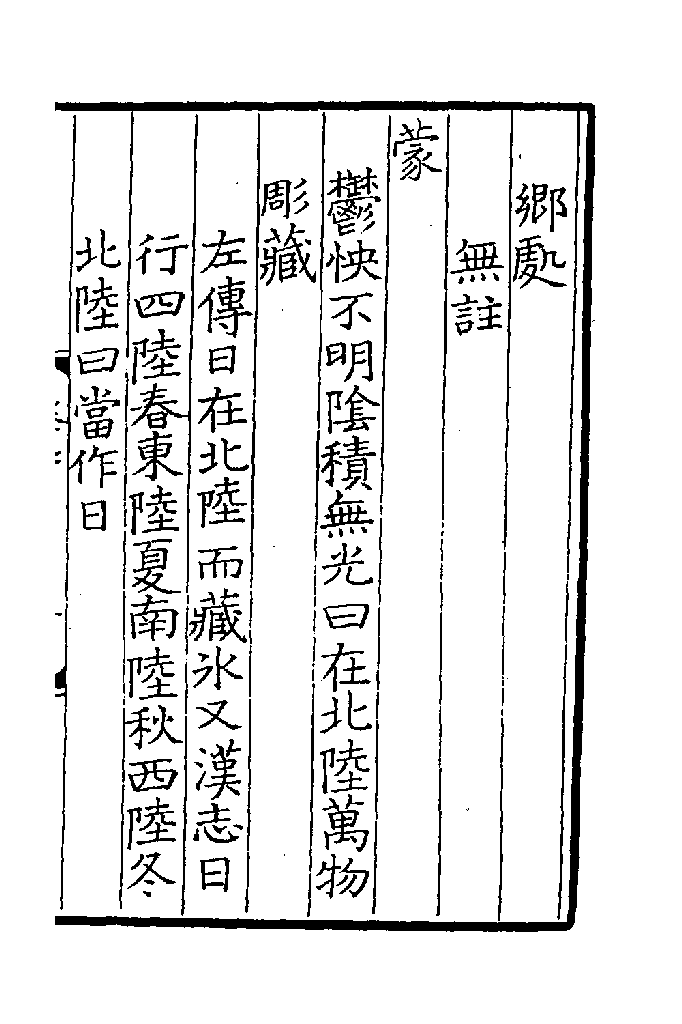 鄉處
無註
蒙
鬱怏不明陰積無光曰在北陸萬物
彫藏
左傳日在北陸而藏氷又漢志日
行四陸春東陸夏南陸秋西陸冬
北陸曰當作日